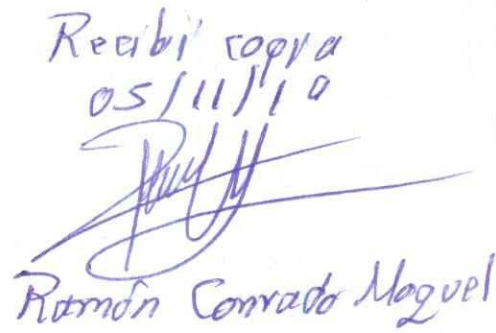 Recibí copia
05/11/10
Ramón Conrado Moguel